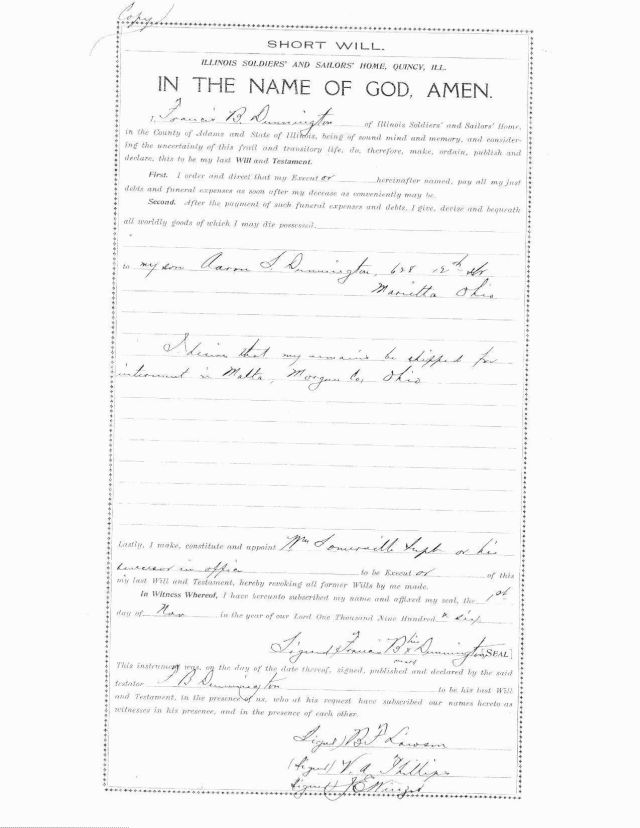 (Copy)
SHORT WILL.
ILLINOIS SOLDIERS' AND SAILORS' HOME, QUINCY, ILL.
IN THE NAME OF GOD, AMEN.
I, Francis B. Dunnington of Illinois Soldiers' and Sailors' Home,
in the County of Adams and State of Illinois, being of sound mind and memory, and consider-
ing the uncertainty of this frail and transitory life, do, therefore, make, ordain, publish and
declare, this to be my last Will and Testament.
First. I order and direct that my Execut or hereinafter named, pay all my just
debts and funeral expenses as soon after my decease as conveniently may be.
Second. After the payment of such funeral expenses and debts, I give, devise and bequeath
all worldly goods of which I may die possessed,
to my son Aaron S. Dunnington, 628 12th Str
Marietta Ohio
I desire that my remains be shipped for
interment in Malta, Morgan Co, Ohio
Lastly, I make, constitute and appoint Wm Somerville Supt or his
successor in office to be Execut or of this
my last Will and Testament, hereby revoking all former Wills by me made.
In Witness Whereof, I have hereunto subscribed my name and affixed my seal, the 1st
day of Nov in the year of our Lord One Thousand Nine Hundred & six
Signed Francis B his x mark Dunnington [SEAL]
This instrument was, on the day of the date thereof, signed, published and declared by the said
testator F B Dunnington to be his last Will
and Testament, in the presence of us, who at his request have subscribed our names hereto as
witnesses in his presence, and in the presence of each other.
Signed) B. F. Lawson
(Signed) V. A. Phillips
Signed) J E